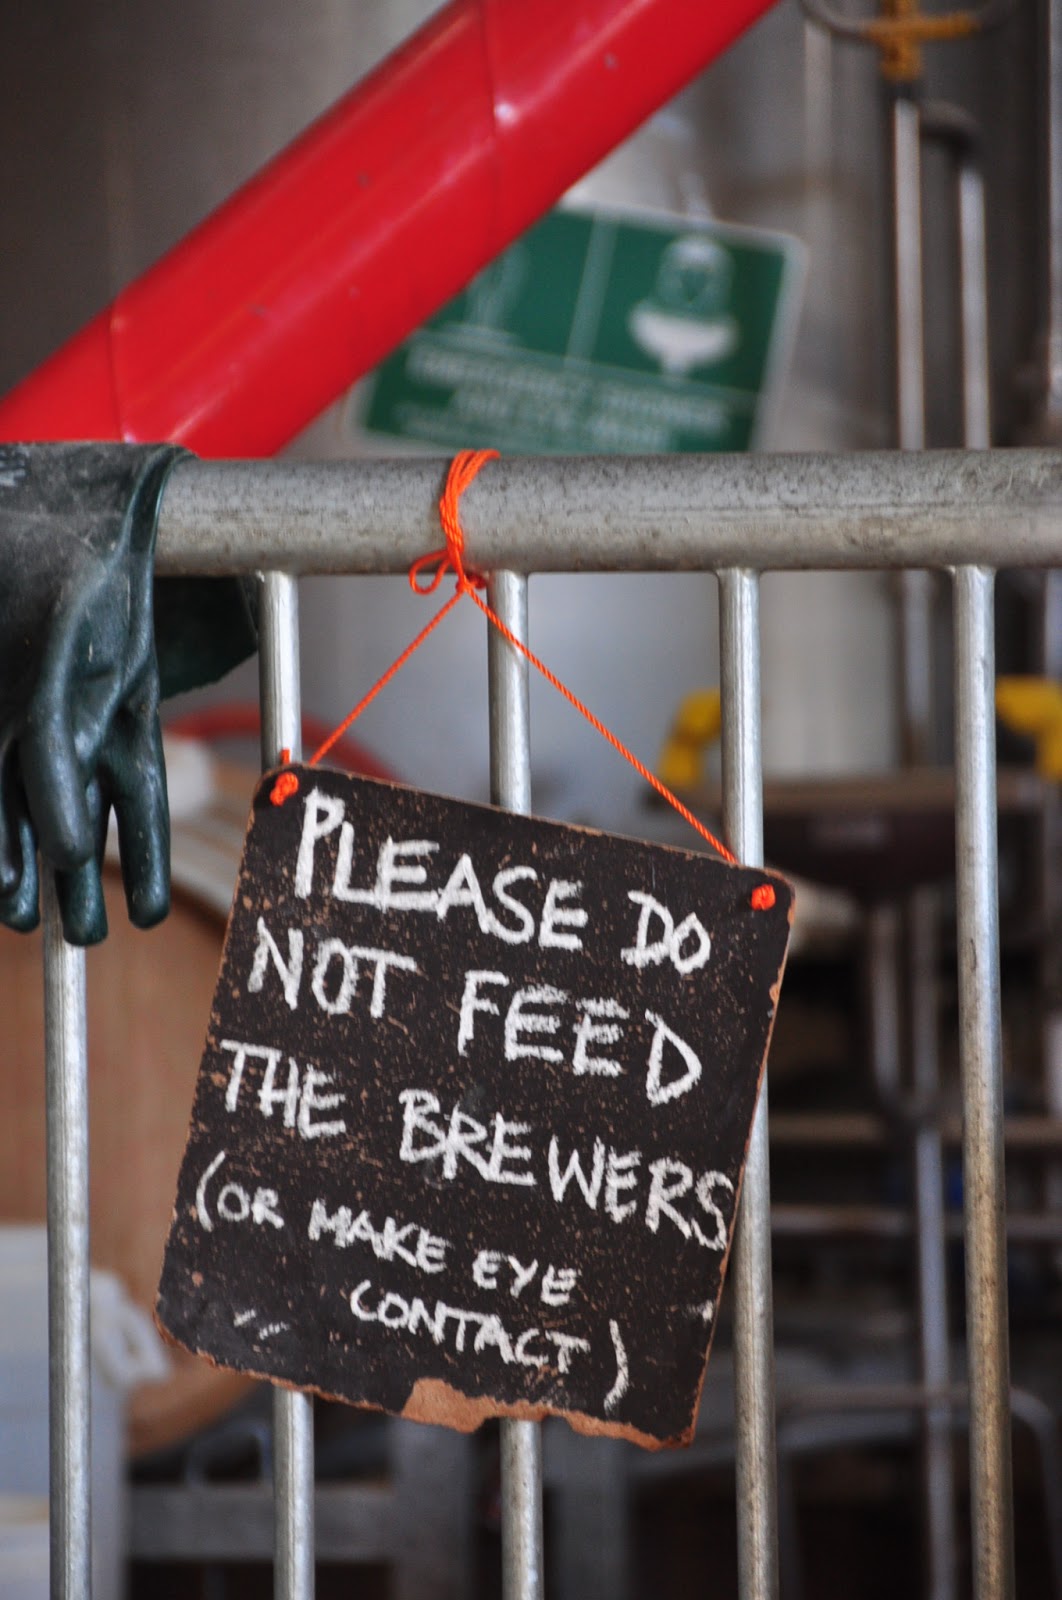 PLEASE DO
NOT FEED
THE BREWERS
(OR MAKE EYE
CONTACT)